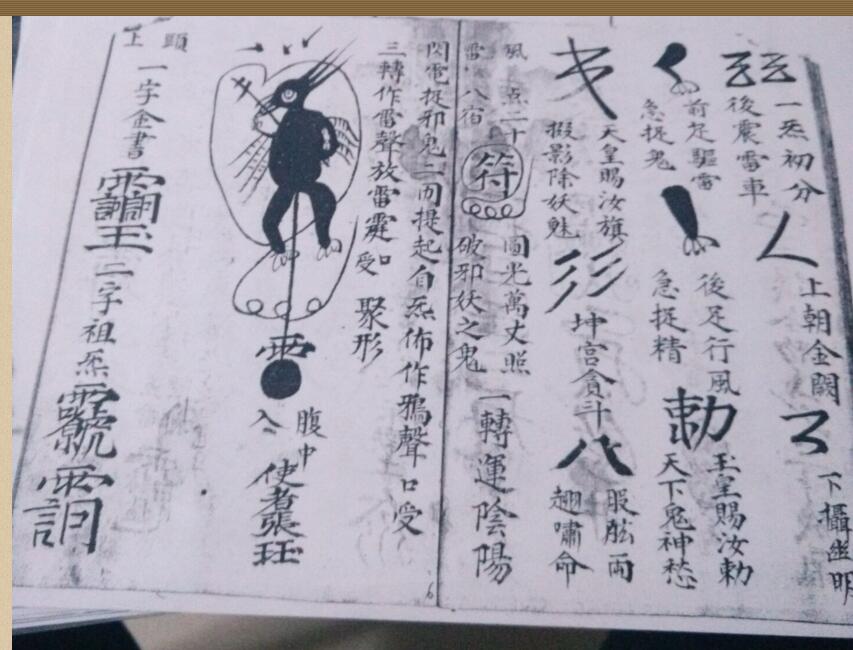 一炁初分
後震雷車
人
上朝金闕
下攝幽明
前足驅雷
急捉鬼
後足行風
急捉精
勅
玉皇賜汝勅
天下鬼神愁
天皇賜汝旗
掇影除妖魅
坤宮貪斗
股肱兩
翅嘯命
風
点二十
雷
八宿
符
圓光萬丈照
破邪妖之鬼
一轉運陰陽
閃電捉邪鬼二而提起自炁佈作鴉聲口受
三轉作雷聲放雷霆口受
聚形
腹中
入
使者張玨
頭上
一字金書
二字祖炁